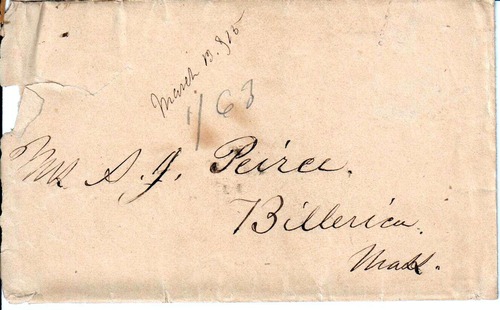 March 13. 
1/63
Mrs A. J. Peirce.
Billerica.
Mass.